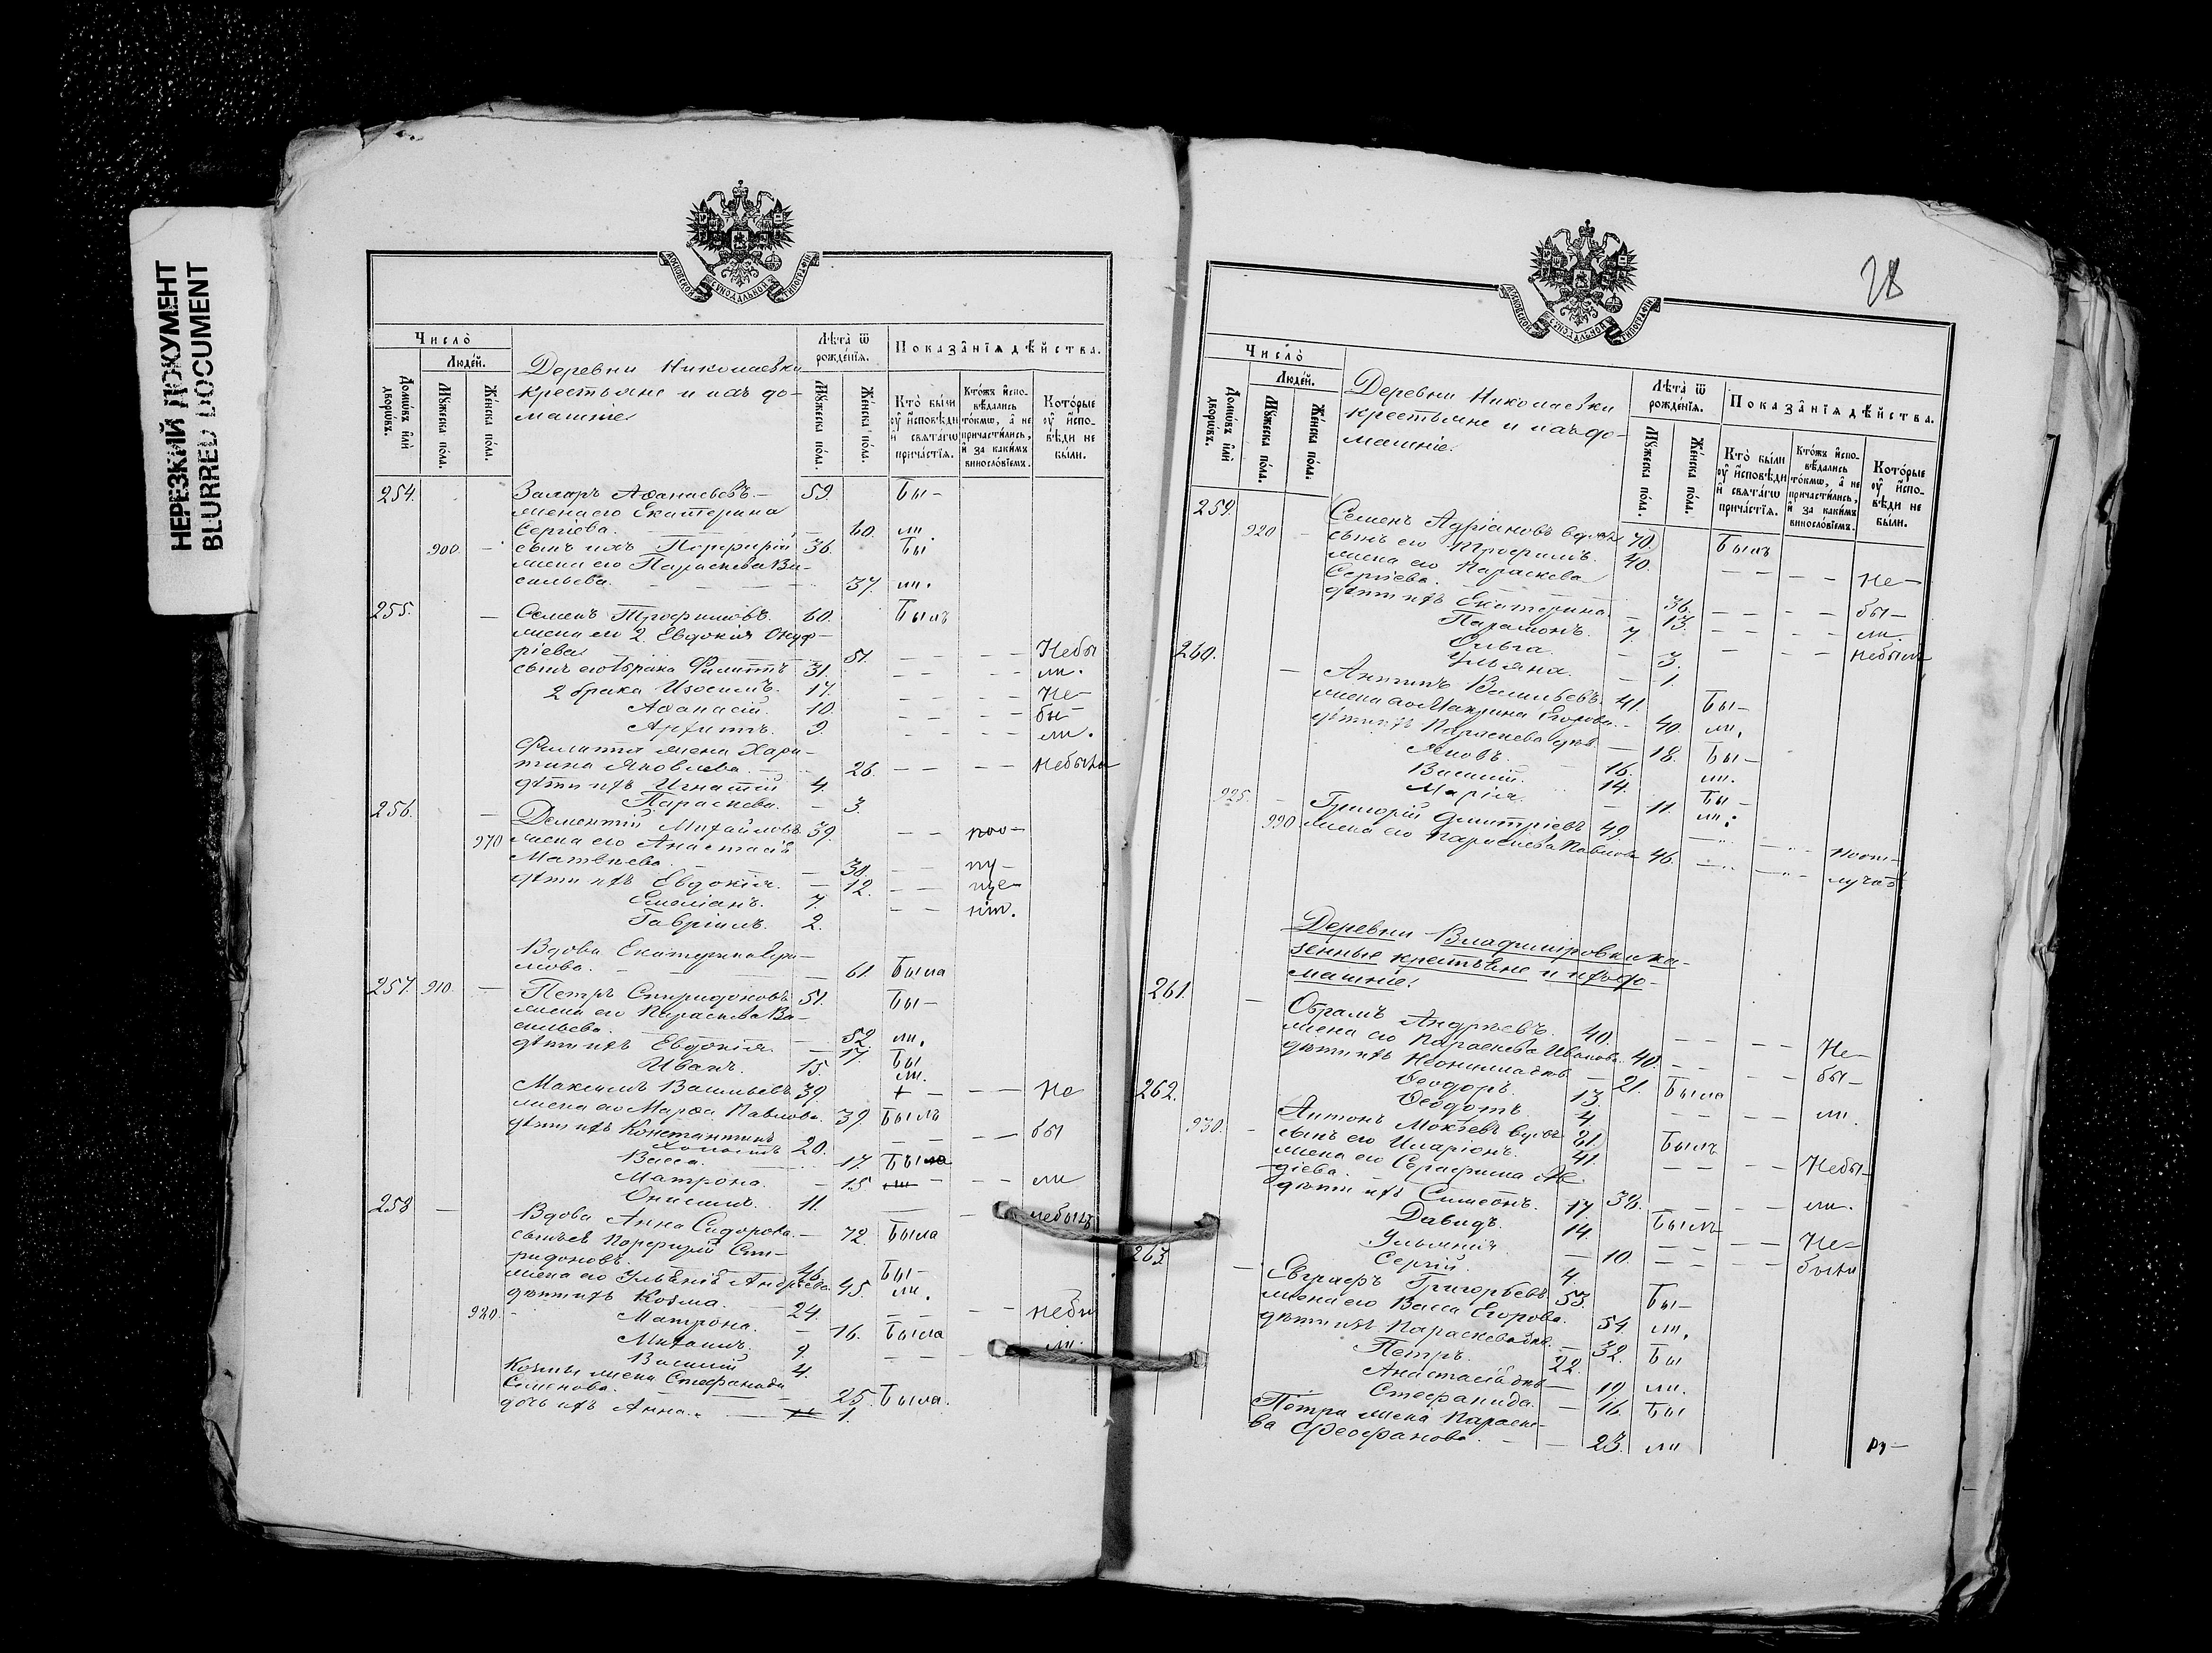 НЕРЕЗКИЙ ДОКУМЕНТ
BLURRED DOCUMENT
МОСКОВСКОЙ СѴНОДАЛЬНОЙ ТИПОГРАФІИ
Число̀
Люде́й.
Домѡ́въ и҆лѝ дворѡ́въ.
Мꙋ́жеска по́ла.
Же́нска по́ла.
Деревни Николаевки
крестьяне и ихъ до-
машніе
Лѣ́та ѿ рожде́нїѧ.
Мꙋ́жеска по́ла.
Же́нска по́ла.
Показа̑нїѧ дѣ́йства.
Кто̀ бы́ли ᲂу҆ и҆́сповѣди и҆ свѧта́гѡ прича́стїѧ.
Кто́жъ и҆спо-вѣ́дались то́кмѡ, а҆ не причасти́лись, и҆ за каки́мъ винослόвїемъ.
Кото́рые ᲂу҆ и҆́спо-вѣди не бы́ли.
254. Захаръ Аѳанасьевъ. — 59. Бы-
жена его Екатерина
Сергіева. — 60. ли.
900. — сынъ ихъ Порфирій 36. Бы
жена его Параскева Ва-
сильева. — 37. ли.
255. — Семенъ Трофимовъ. 60. Былъ
жена его 2. Евдокія Онуф-
ріева — 51. — — — — Небы
сынъ его 1 брака Филиппъ 31. — — — — ли.
2 брака Изосимъ. 17. — — — — Не-
Аѳанасій. 10. — — — — бы-
Архипъ. 9. — — — — ли.
Филиппа жена Хари-
тина Яковлева. — 26. — — — — Небыла
дѣти ихъ Игнатій 4.
Параскева. — 3.
256. — Дементій Михайловъ 39. — — поо-
970 жена его Анастасія
Матвѣева. — 38. — — пу-
дѣти ихъ Евдокія. — 12. — — ще-
Емеліанъ. 7. — — нію.
Гавріилъ. 2.
Вдова Екатерина
мова. — 61. Была
257. 910. — Петръ Спиридоновъ 51. Бы-
жена его Параскева Ва-
сильева. — 52. ли.
дѣти ихъ Евдокія — 17. Бы
Иванъ. 15. ли.
Максимъ Васильевъ 39. + — — — Не
жена его Марѳа Павлова. 39. Былъ
дѣти ихъ Константинъ — — — — бы
Холостъ 20.
Васса. — 17. Была
Матрона. — 15 ли — — — ли
Онисимъ. 11. — — небылъ
258 — Вдова Анна Сидорова. — 72. Была
сынъ ея Порфирій Спи-
ридоновъ. 46. Бы-
жена его Ульянія Андреева. 45. ли.
дѣти ихъ Козма. 24. — — — — небы
920. — Матрона. — 16. Была
Михаилъ. 9. — — ли
Василій 4.
Козмы жена Стефанида
Семенова. — 25. Была.
дочь ихъ Анна. — 1.
28
МОСКОВСКОЙ СѴНОДАЛЬНОЙ ТИПОГРАФІИ
Число̀
Люде́й.
Домѡ́въ и҆лѝ дворѡ́въ.
Мꙋ́жеска по́ла.
Же́нска по́ла.
Деревни Николаевки
крестьяне и ихъ до-
машніе.
Лѣ́та ѿ рожде́нїѧ.
Мꙋ́жеска по́ла.
Же́нска по́ла.
Показа̑нїѧ дѣ́йства.
Кто̀ бы́ли ᲂу҆ и҆́сповѣди и҆ свѧта́гѡ прича́стїѧ.
Кто́жъ и҆спо-вѣ́дались то́кмѡ, а҆ не причасти́лись, и҆ за каки́мъ винослόвїемъ.
Кото́рые ᲂу҆ и҆́спо-вѣди не бы́ли.
259. Семенъ Адріановъ вдовъ 70. Былъ
920 — сынъ его Трофимъ. 40. — — — — Не-
жена его Параскева
Сергіева. — 36. — — — — бы-
дѣти ихъ Екатерина. — 13. — — — — ли.
Парамонъ. 7. — — — Небылъ
Ольга. — 3.
Ульяна. — 1.
260. — Антипъ Васильевъ. 41. Бы-
жена его Макрина Егорова. — 40. ли.
дѣти ихъ Параскева дѣв. — 18. Бы-
Яковъ. 16. ли.
Василій. 14. Бы-
Марія. — 11. ли.
925. — Григорій Дмитріевъ 49. — — Поот-
990. жена его Параскева Павлова 46. — — лучкѣ
Деревни Владиміровки ка-
зенные крестьяне и ихъ до-
машніе.
261. — Абрамъ Андреевъ. 40. — — — — Не-
жена его Параскева Иванова. 40. — — — — бы-
дѣти ихъ Неонила дѣв. — 21. Была
Ѳеодоръ. 13. — — — — ли.
Ѳеодотъ. 4.
262. Антонъ Мокеевъ вдовъ 81. Былъ
930. — сынъ его Иларіонъ. 41. — — — — Небы-
жена его Серафима
діева. — 38. — — — — ли.
дѣти ихъ Симеонъ. 17. Былъ
Давидъ. 14. — — — — Не-
Ульянія — 10. — — — — были
Сергій. 4.
263 — Евграфъ Григорьевъ 53. Бы-
жена его Васса Егорова. 54. ли.
дѣти ихъ Параскева дѣв. — 32. Бы
Петръ. 22.
Анастасія дѣв. — 19. ли.
Стефанида. — 16. Бы
Петра жена Параске-
ва Ѳеофанова. — 23. ли